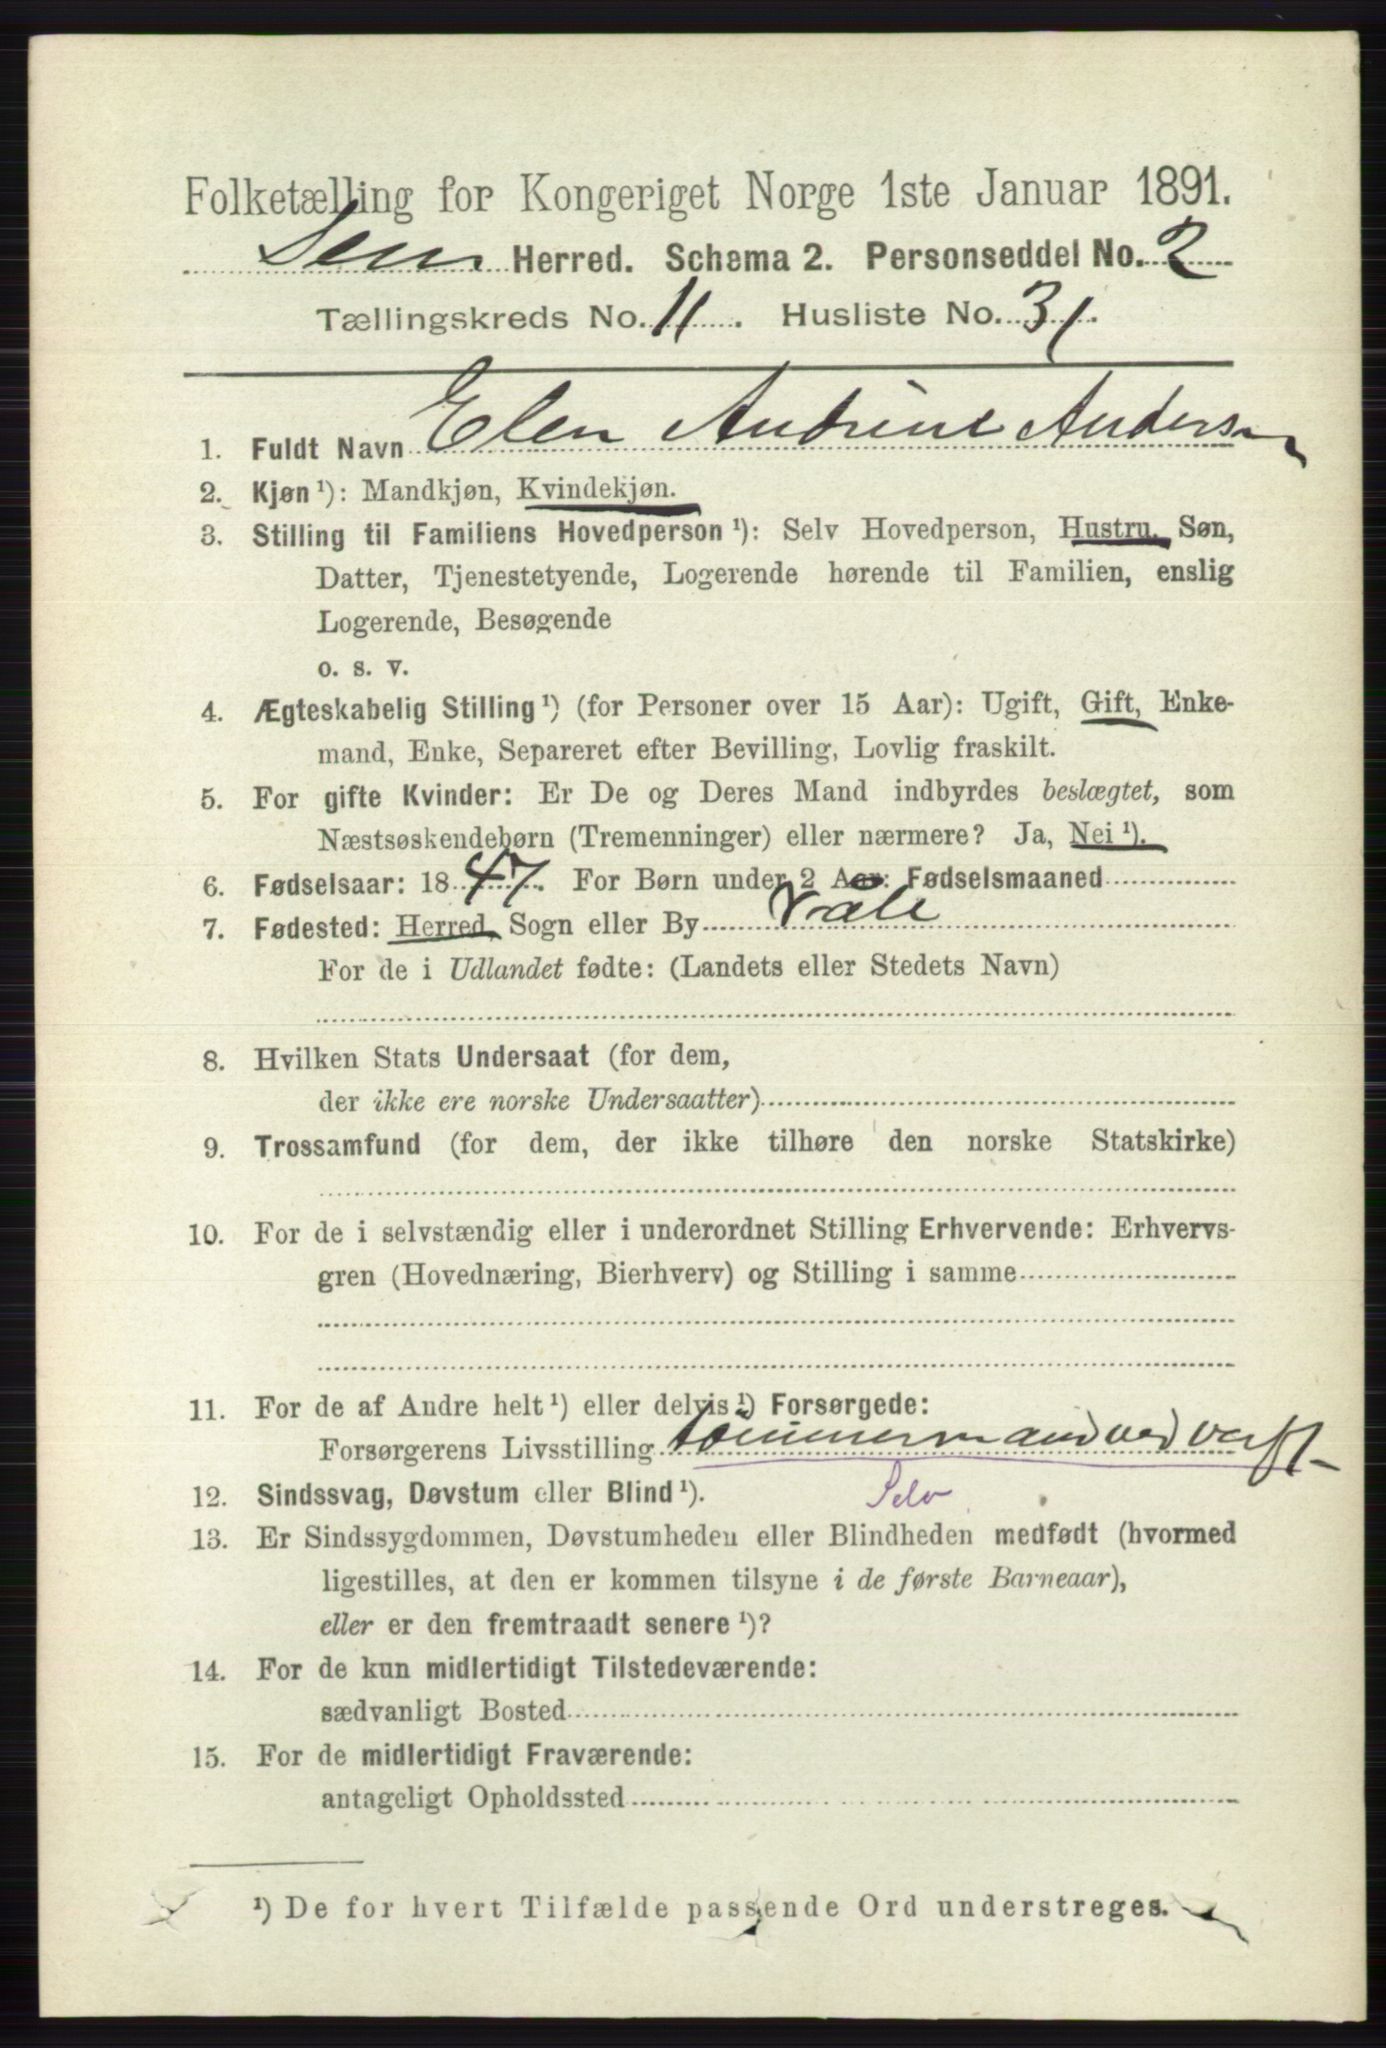 Folketælling for Kongeriget Norge 1ste Januar 1891.
Sem Herred. Schema 2. Personseddel No. 2
Tællingskreds No. 11. Husliste No. 31.
1. Fuldt Navn Elen Andrine Andersen
2. Kjøn ¹): Mandkjøn, Kvindekjøn.
3. Stilling til Familiens Hovedperson ¹): Selv Hovedperson, Hustru, Søn,
Datter, Tjenestetyende, Logerende hørende til Familien, enslig
Logerende, Besøgende
o. s. v.
4. Ægteskabelig Stilling ¹) (for Personer over 15 Aar): Ugift, Gift, Enke-
mand, Enke, Separeret efter Bevilling, Lovlig fraskilt.
5. For gifte Kvinder: Er De og Deres Mand indbyrdes beslægtet, som
Næstsøskendebørn (Tremenninger) eller nærmere? Ja, Nei ¹).
6. Fødselsaar: 1847. For Børn under 2 Aar: Fødselsmaaned
7. Fødested: Herred, Sogn eller By Våle
For de i Udlandet fødte: (Landets eller Stedets Navn)
8. Hvilken Stats Undersaat (for dem,
der ikke ere norske Undersaatter)
9. Trossamfund (for dem, der ikke tilhøre den norske Statskirke)
10. For de i selvstændig eller i underordnet Stilling Erhvervende: Erhvervs-
gren (Hovednæring, Bierhverv) og Stilling i samme
11. For de af Andre helt ¹) eller delvis ¹) Forsørgede:
Forsørgerens Livsstilling tømmermand ved verft
12. Sindssvag, Døvstum eller Blind ¹). Selv
13. Er Sindssygdommen, Døvstumheden eller Blindheden medfødt (hvormed
ligestilles, at den er kommen tilsyne i de første Barneaar),
eller er den fremtraadt senere ¹)?
14. For de kun midlertidigt Tilstedeværende:
sædvanligt Bosted
15. For de midlertidigt Fraværende:
antageligt Opholdssted
¹) De for hvert Tilfælde passende Ord understreges.